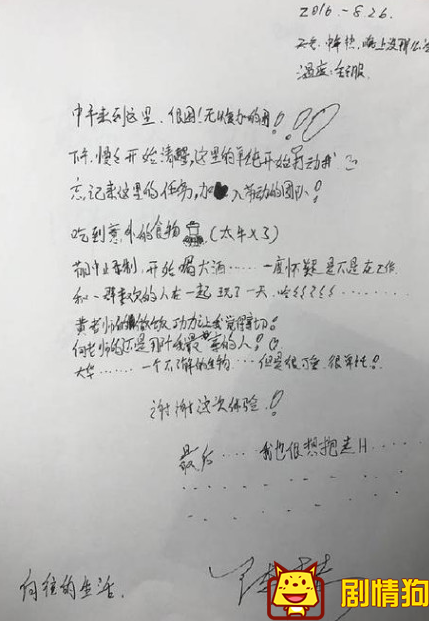 2016.-8.26.
天气:中午热,晚上没那么
温度:舒服.
中午来到这里、很困!无
下午.慢慢开始清醒,这里的单纯开始打动我
忘记来这里的任务,加入劳动的团队!
吃到意外的食物(太牛X了)
开始喝大酒……一度怀疑是不是在工作
和一群喜欢的人在一起玩了一天,哈
黄老师的做饭功力让我觉得亲切!
何老师的还是那个我最的人!
大华……一个不了解的生物……但是很,很单纯!
谢谢这次体验!
最后……我也很想抱走H……
向往的生活.
剧情狗